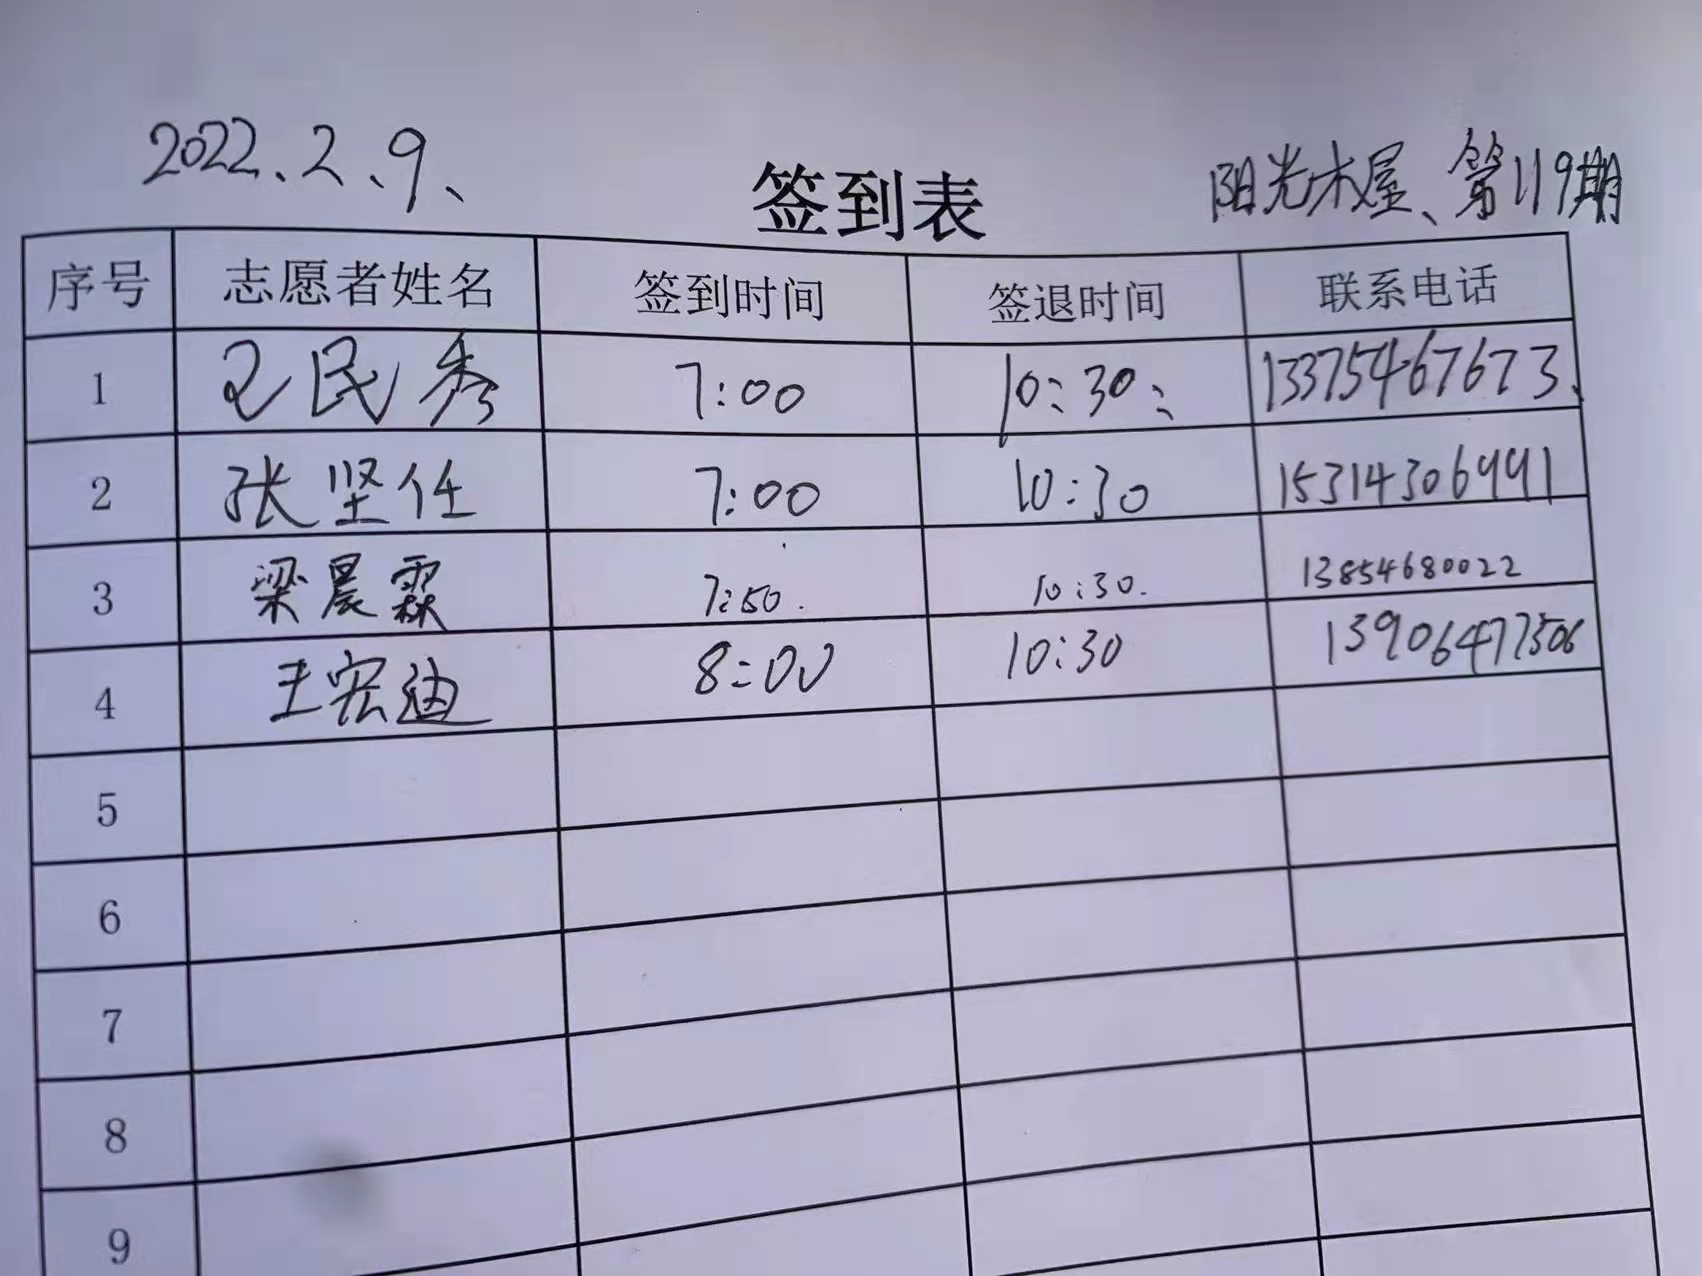 2022、2、9、
签到表
阳光木屋、第119期
序号 志愿者姓名 签到时间 签退时间 联系电话
1 王民秀 7:00 10:30: 13375467673、
2 张坚任 7:00 10:30 15314306991
3 梁晨霖 7:50. 10:30. 13854680022
4 王宏迪 8:00 10:30 13906477506
5
6
7
8
9